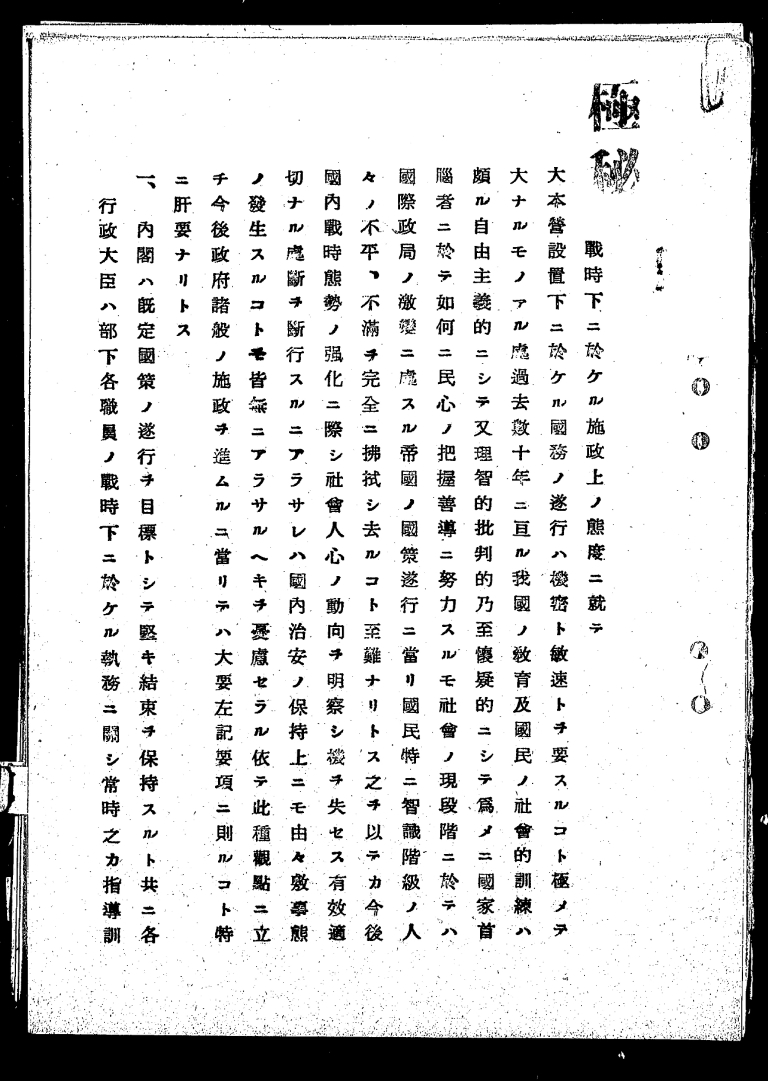 極秘
戰時下ニ於ケル施政上ノ態度ニ就テ
大本營設置下ニ於ケル國務ノ遂行ハ機密ト敏速トヲ要スルコト極メテ
大ナルモノアル處過去數十年ニ亘ル我國ノ敎育及國民ノ社會的訓練ハ
頗ル自由主義的ニシテ又理智的批判的乃至懷疑的ニシテ爲メニ國家首
腦者ニ於テ如何ニ民心ノ把握善導ニ努力スルモ社會ノ現段階ニ於テハ
國際政局ノ激變ニ處スル帝國ノ國策遂行ニ當リ國民特ニ智識階級ノ人
々ノ不平、不滿ヲ完全ニ拂拭シ去ルコト至難ナリトス之ヲ以テカ今後
國內戰時態勢ノ强化ニ際シ社會人心ノ動向ヲ明察シ機ヲ失セス有效適
切ナル處斷ヲ斷行スルニアラサレハ國內治安ノ保持上ニモ由々敷事態
ノ發生スルコトモ皆無ニアラサルヘキヲ憂慮セラル依テ此種觀點ニ立
チ今後政府諸般ノ施政ヲ進ムルニ當リテハ大要左記要項ニ則ルコト特
ニ肝要ナリトス
一、內閣ハ旣定國策ノ遂行ヲ目標トシテ堅キ結束ヲ保持スルト共ニ各
行政大臣ハ部下各職員ノ戰時下ニ於ケル執務ニ關シ常時之カ指導訓